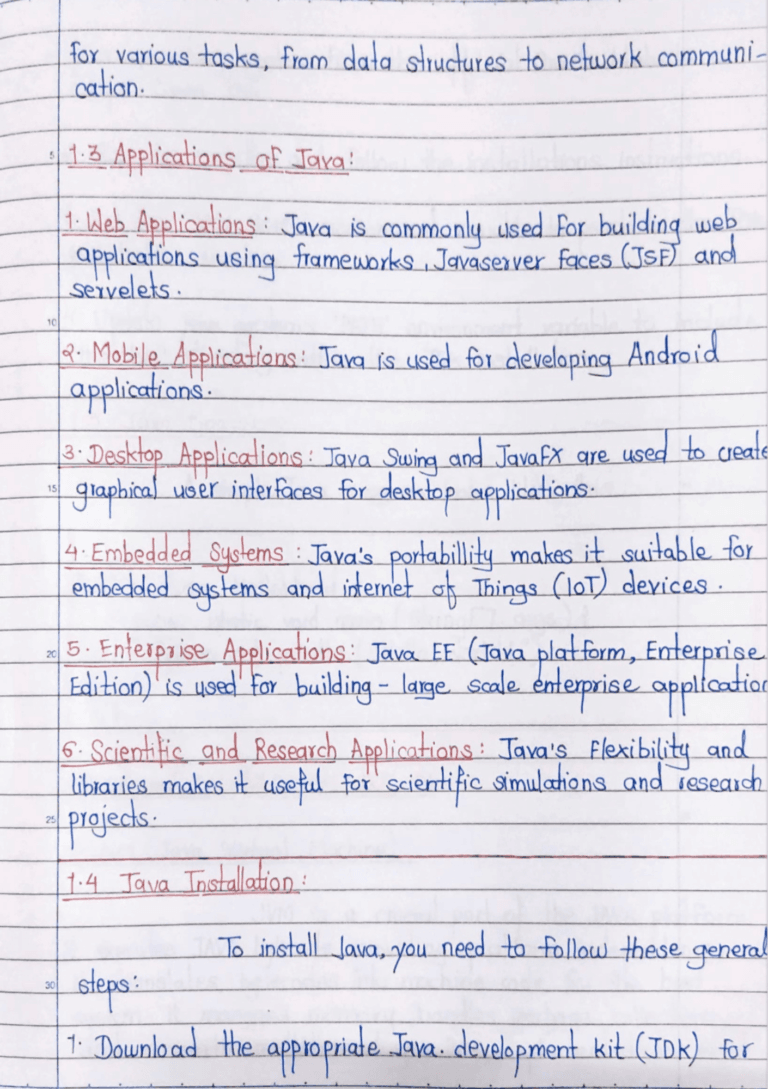 for various tasks, from data structures to network communi-
cation.
5
1.3 Applications of Java:
1. Web Applications: Java is commonly used for building web
applications using frameworks, Javaserver faces (JSF) and
servelets.
10
2. Mobile Applications: Java is used for developing Android
applications.
3. Desktop Applications: Java Swing and JavaFX are used to create
15 graphical user interfaces for desktop applications.
4. Embedded Systems: Java's portabillity makes it suitable for
embedded systems and internet of Things (IoT) devices.
20 5. Enterprise Applications: Java EE (Java platform, Enterprise
Edition) is used for building - large scale enterprise application
6. Scientific and Research Applications: Java's Flexibility and
libraries makes it useful for scientific simulations and research
25 projects.
1.4 Java Installation:
To install Java, you need to follow these general
30 steps:
1. Download the appropriate Java. development kit (JDK) for